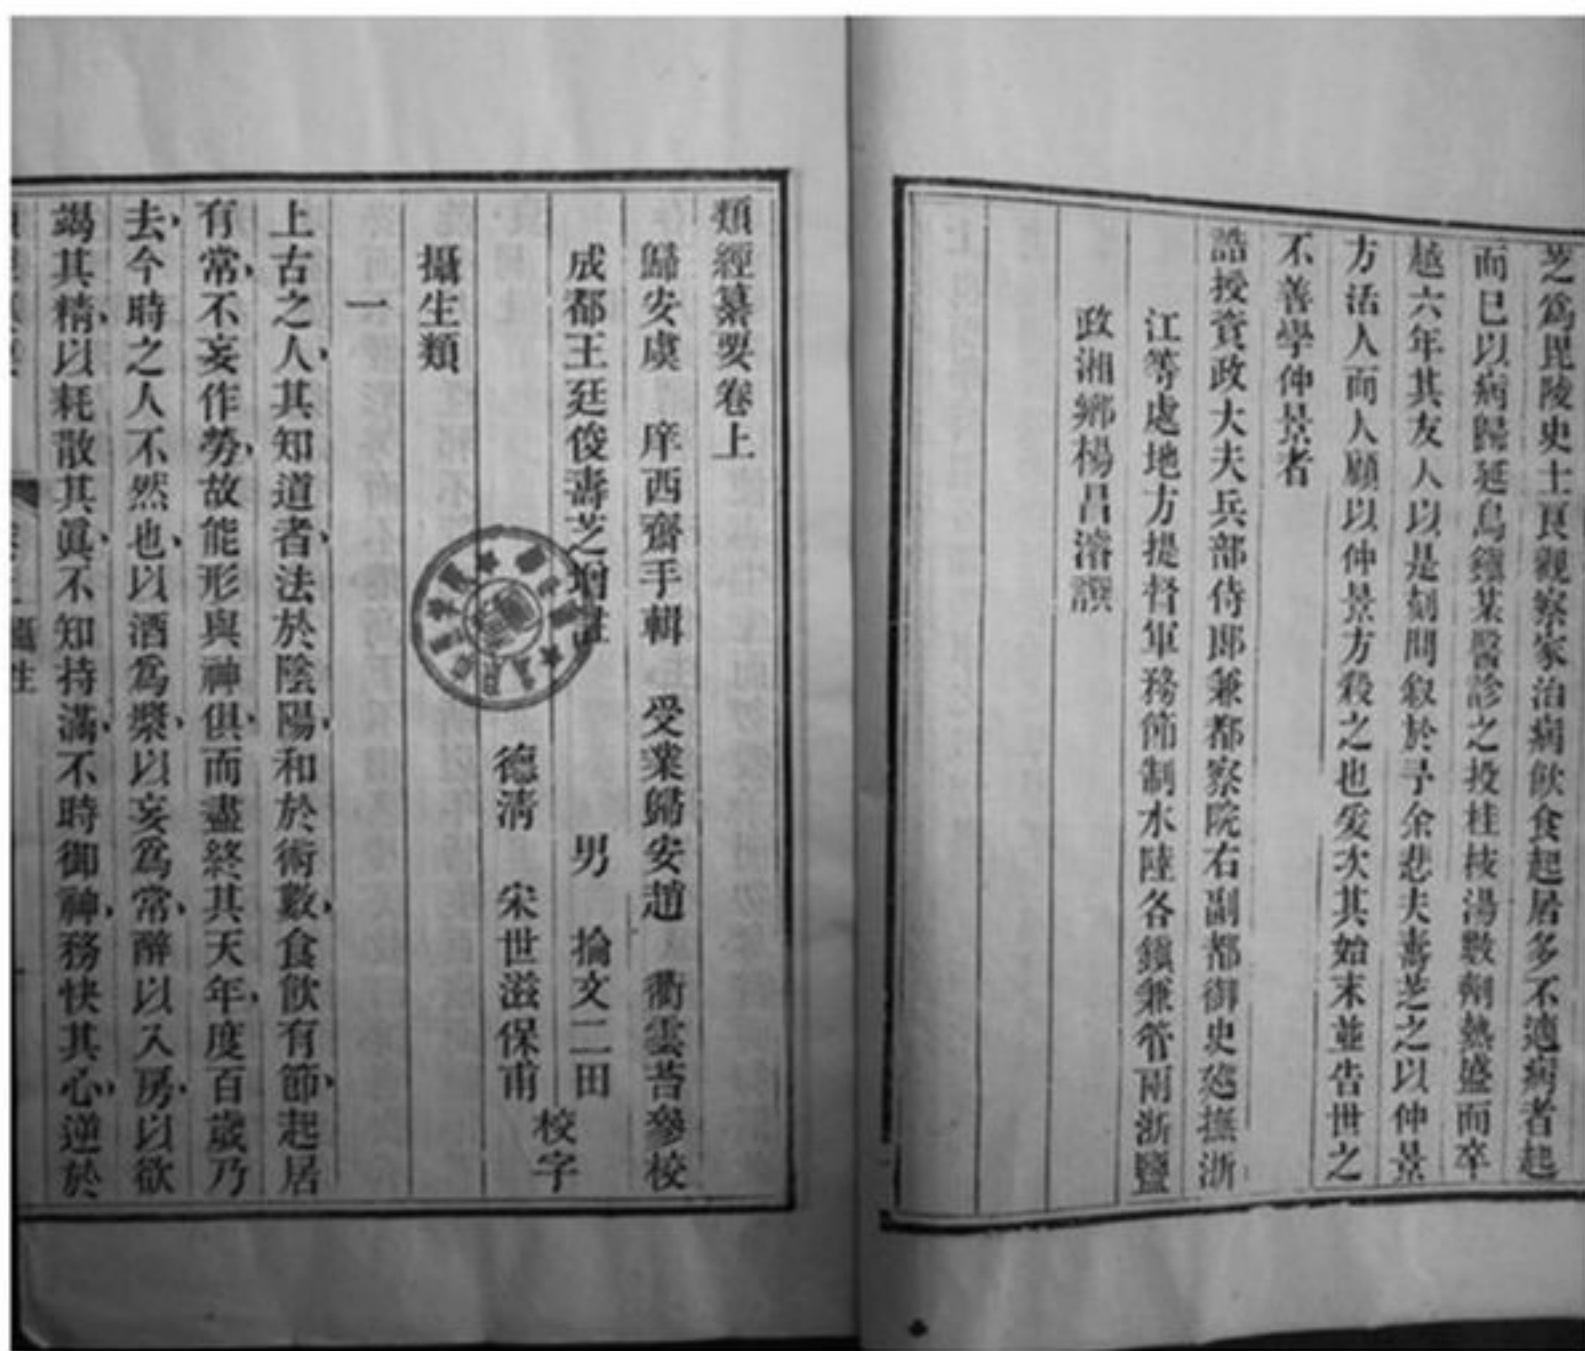 芝爲毘陵史士良觀察家治病飲食起居多不適病者起
而已以病歸延烏鎮某醫診之投桂枝湯數劑熱盛而卒
越六年其友人以是刻問敘於予余悲夫壽芝之以仲景
方活人而人顧以仲景方殺之也爰次其始末並告世之
不善學仲景者
誥授資政大夫兵部侍郎兼都察院右副都御史廵撫浙
江等處地方提督軍務節制水陸各鎮兼管兩浙鹽
政湘鄉楊昌濬譔
類經纂要卷上
歸安虞 庠西齋手輯 受業歸安趙 衢雲苔參校
成都王廷俊壽芝增註 男 掄文二田
德清 宋世滋保甫
校字
攝生類
一
上古之人其知道者法於陰陽和於術數食飲有節起居
有常不妄作勞故能形與神俱而盡終其天年度百歲乃
去今時之人不然也以酒爲漿以妄爲常醉以入房以欲
竭其精以耗散其眞不知持滿不時御神務快其心逆於